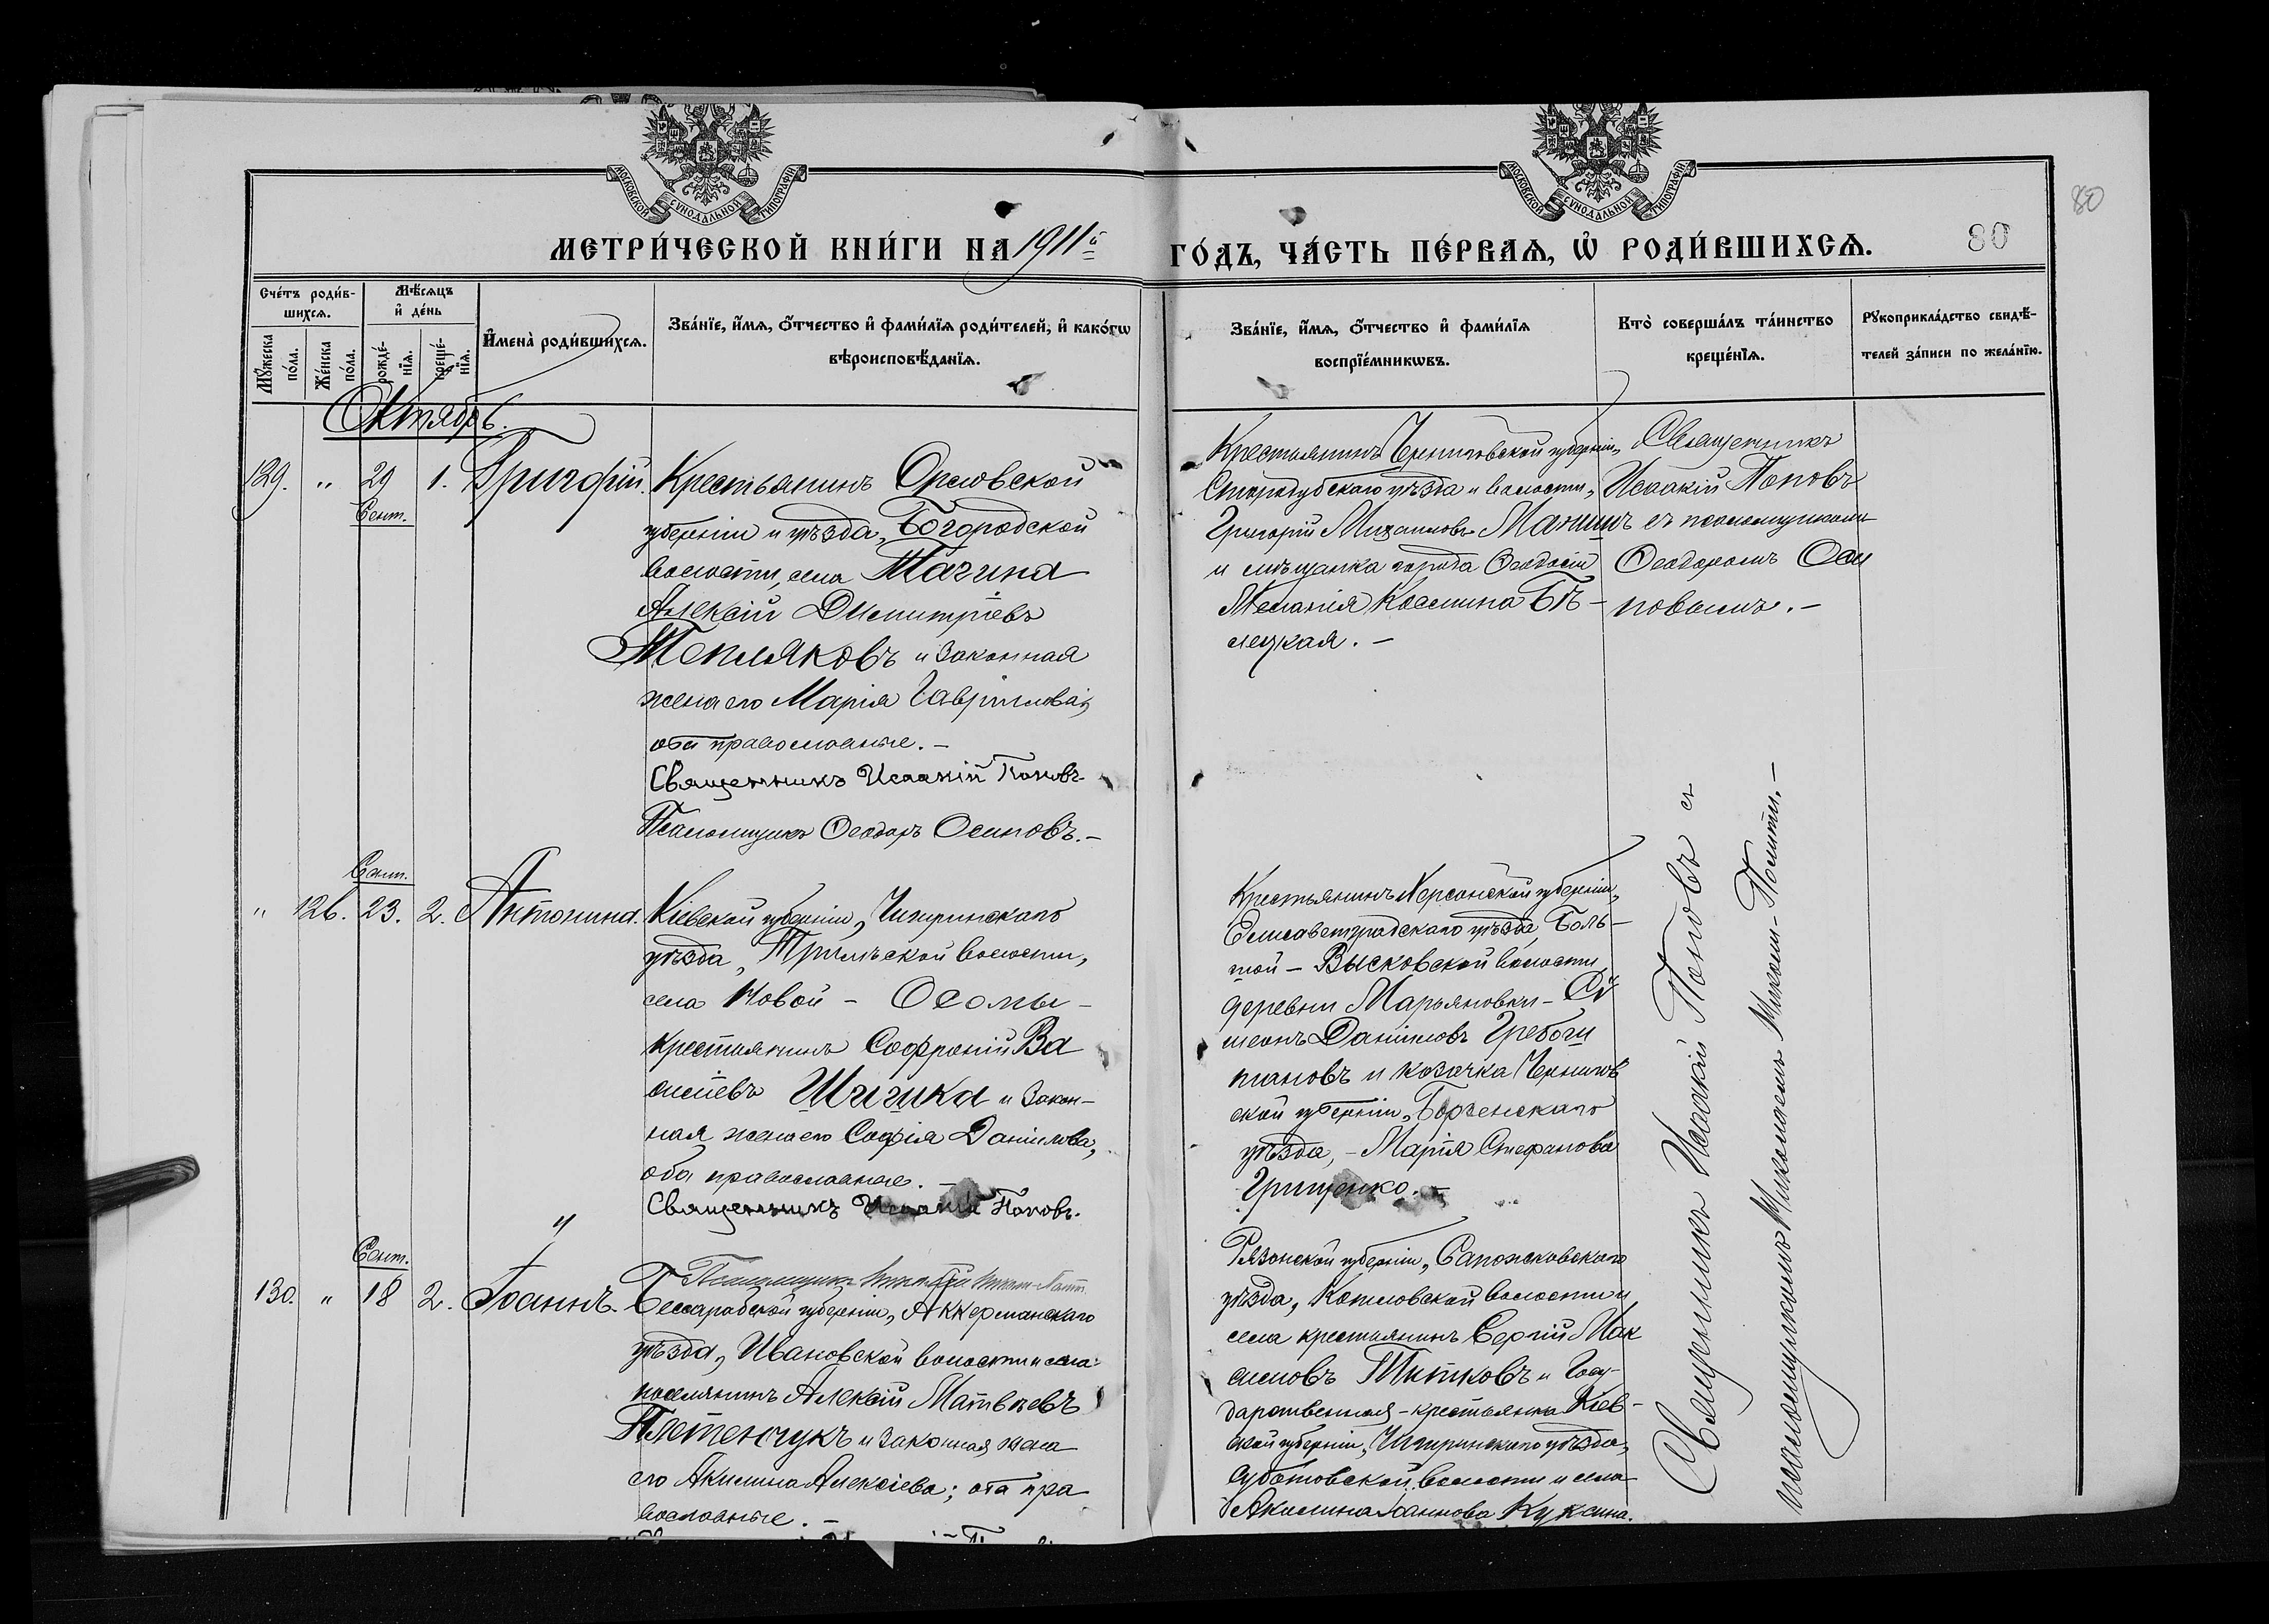 МОСКОВСКОЙ СѴНОДАЛЬНОЙ ТИПОГРАФІИ
МОСКОВСКОЙ СѴНОДАЛЬНОЙ ТИПОГРАФІИ
МЕТРИ́ЧЕСКОЙ КНИ́ГИ НА 1911й
ГО́ДЪ, ЧА́СТЬ ПЕ́РВАѦ, Ѡ҆ РОДИ́ВШИХСѦ.
80
80
Сче́тъ роди́в-
шихсѧ.
Мꙋ́жеска по́ла.
Же́нска по́ла.
Мѣ́сѧцъ
и҆ де́нь
рожде́-нїѧ.
креще́-нїѧ.
И҆мена̀ роди́вшихсѧ.
Зва́нїе, и҆́мѧ, ѻ҆́тчество и҆ фами́лїѧ роди́телей, и҆ како́гѡ
вѣроисповѣ́данїѧ.
Зва́нїе, и҆́мѧ, ѻ҆́тчество и҆ фами́лїѧ
воспрїе́мникѡвъ.
Кто̀ соверша́лъ та́инство
креще́нїѧ.
Рꙋкоприкла́дство свидѣ́-
телей за́писи по жела́нїю.
Октябрь.
129. " 29 Сент. 1. Григорій.
Крестьянинъ Орловской
губерніи и уѣзда, Богородской
волости, села Пагина
Алексій Димитріевъ
Тепляковъ и законная
жена его Марія Гавріилова,
оба православные.-
Священникъ Исаакій Поповъ
Псаломщикъ Ѳеодоръ Осиповъ.-
Крестьянинъ Черниговской губерніи,
Стародубскаго уѣзда и волости,
Григорій Михаиловъ Манишъ
и мѣщанка города Ѳеодосіи
Меланія Космина Бѣ-
лецкая.-
Священникъ
Исаакій Поповъ
съ псаломщикомъ
Ѳеодоромъ Оси
повымъ.-
" 126. Сент. 23. 2. Антонина.
Кіевской губерніи, Чигиринскаго
уѣзда, Трилѣской волости,
села Новой - Осоты -
крестьянинъ Софроній Ва
силіевъ и закон-
ная жена его Софія Даніилова,
оба православные.-
Священникъ Исаакій Поповъ.
Крестьянинъ Херсонской губерніи,
Елисаветградскаго уѣзда, Боль-
шой - Высковской волости,
деревни Марьяновки - Си
меонъ Даніиловъ
и козачка Чернигов
ской губерніи, Борзенскаго
уѣзда, - Марія Стефанова
Грищенко.-
Священникъ Исаакій Поповъ съ
псаломщикомъ Николаемъ
130. " Сент. 18 2. Іоаннъ.
Псаломщикъ
Бессарабской губерніи, Аккерманскаго
уѣзда, Ивановской волости и села
поселянинъ Алексій Матвѣевъ
Плетенчукъ и законная жена
его Акилина Алексіева; оба пра
вославные.-
Рязанской губерніи, Сапожковскаго
уѣзда, волости и
села крестьянинъ Сергій Мак
симовъ Титковъ и Госу-
дарственная - крестьянка Кіев-
ской губерніи, Чигиринскаго уѣзда,
Суботовской волости и села
Акилина Іоаннова